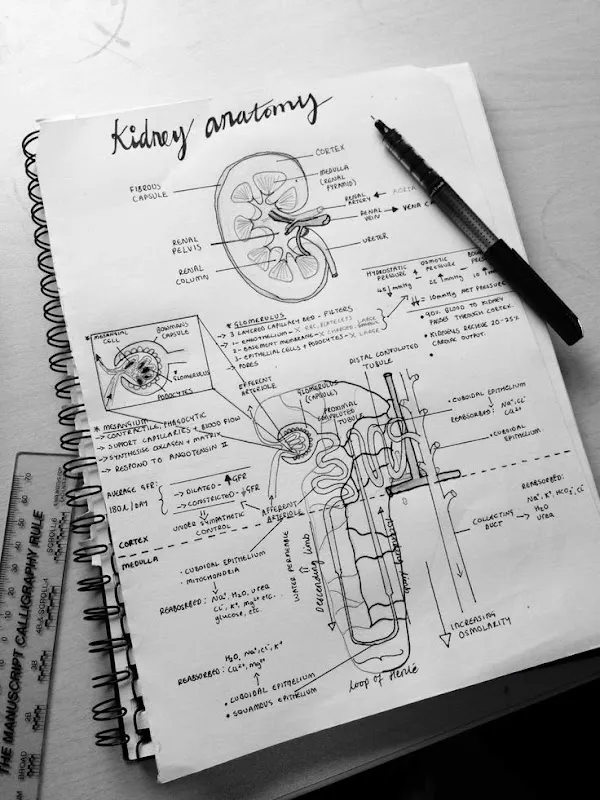 Kidney anatomy
FIBROUS
CAPSULE
CORTEX
MEDULLA
(RENAL
PYRAMID)
RENAL
ARTERY ← AORTA
RENAL
VEIN → VENA
URETER
RENAL
PELVIS
RENAL
COLUMN
HYDROSTATIC
PRESSURE
OSMOTIC
PRESSURE
45 mmHg
10
= 10mmHg NET PRESSURE
• 90% BLOOD TO KIDNEY
PASSES THROUGH CORTEX.
• KIDNEYS RECIEVE 20-25%
CARDIAC OUTPUT.
* GLOMERULUS
→ 3 LAYERED CAPILLARY BED - FILTERS
1 - ENDOTHELIUM - X RBC, PLATELETS
2 - BASEMENT MEMBRANE - X CHARGED, LARGE
3 - EPITHELIAL CELLS + PODOCYTES - X LARGE
→ PORES
* MESANGIAL
CELL
BOWMANS
CAPSULE
* GLOMERULUS
PODOCYTES
* MESANGIUM
→ CONTRACTILE, PHAGOCYTIC
→ SUPPORT CAPILLARIES + BLOOD FLOW
→ SYNTHESISE COLLAGEN + MATRIX
→ RESPOND TO ANGIOTENSIN II
EFFERENT
ARTERIOLE
GLOMERULUS
(CAPSULE)
PROXIMAL
CONVOLUTED
TUBULE
DISTAL CONVOLUTED
TUBULE
• CUBOIDAL EPITHELIUM
REABSORBED: Na⁺, Cl⁻
Ca²⁺
• CUBOIDAL
EPITHELIUM
AVERAGE GFR:
180L/DAY
→ DILATED - ↑GFR
→ CONSTRICTED - ↓GFR
UNDER SYMPATHETIC
CONTROL
AFFERENT
ARTERIOLE
CORTEX
MEDULLA
• CUBOIDAL EPITHELIUM
• MITOCHONDRIA
REABSORBED: Na⁺, H₂O, urea
Cl⁻, K⁺, Mg²⁺ etc.
glucose, etc.
WATER PERMEABLE
Descending limb
COLLECTING
DUCT
REABSORBED:
Na⁺, K⁺, HCO₃⁻, Cl⁻
H₂O
urea
INCREASING
OSMOLARITY
H₂O, Na⁺, Cl⁻, K⁺
REABSORBED: Ca²⁺, Mg²⁺
• CUBOIDAL EPITHELIUM
• SQUAMOUS EPITHELIUM
loop of Henlé
THE MANUSCRIPT CALLIGRAPHY RULE